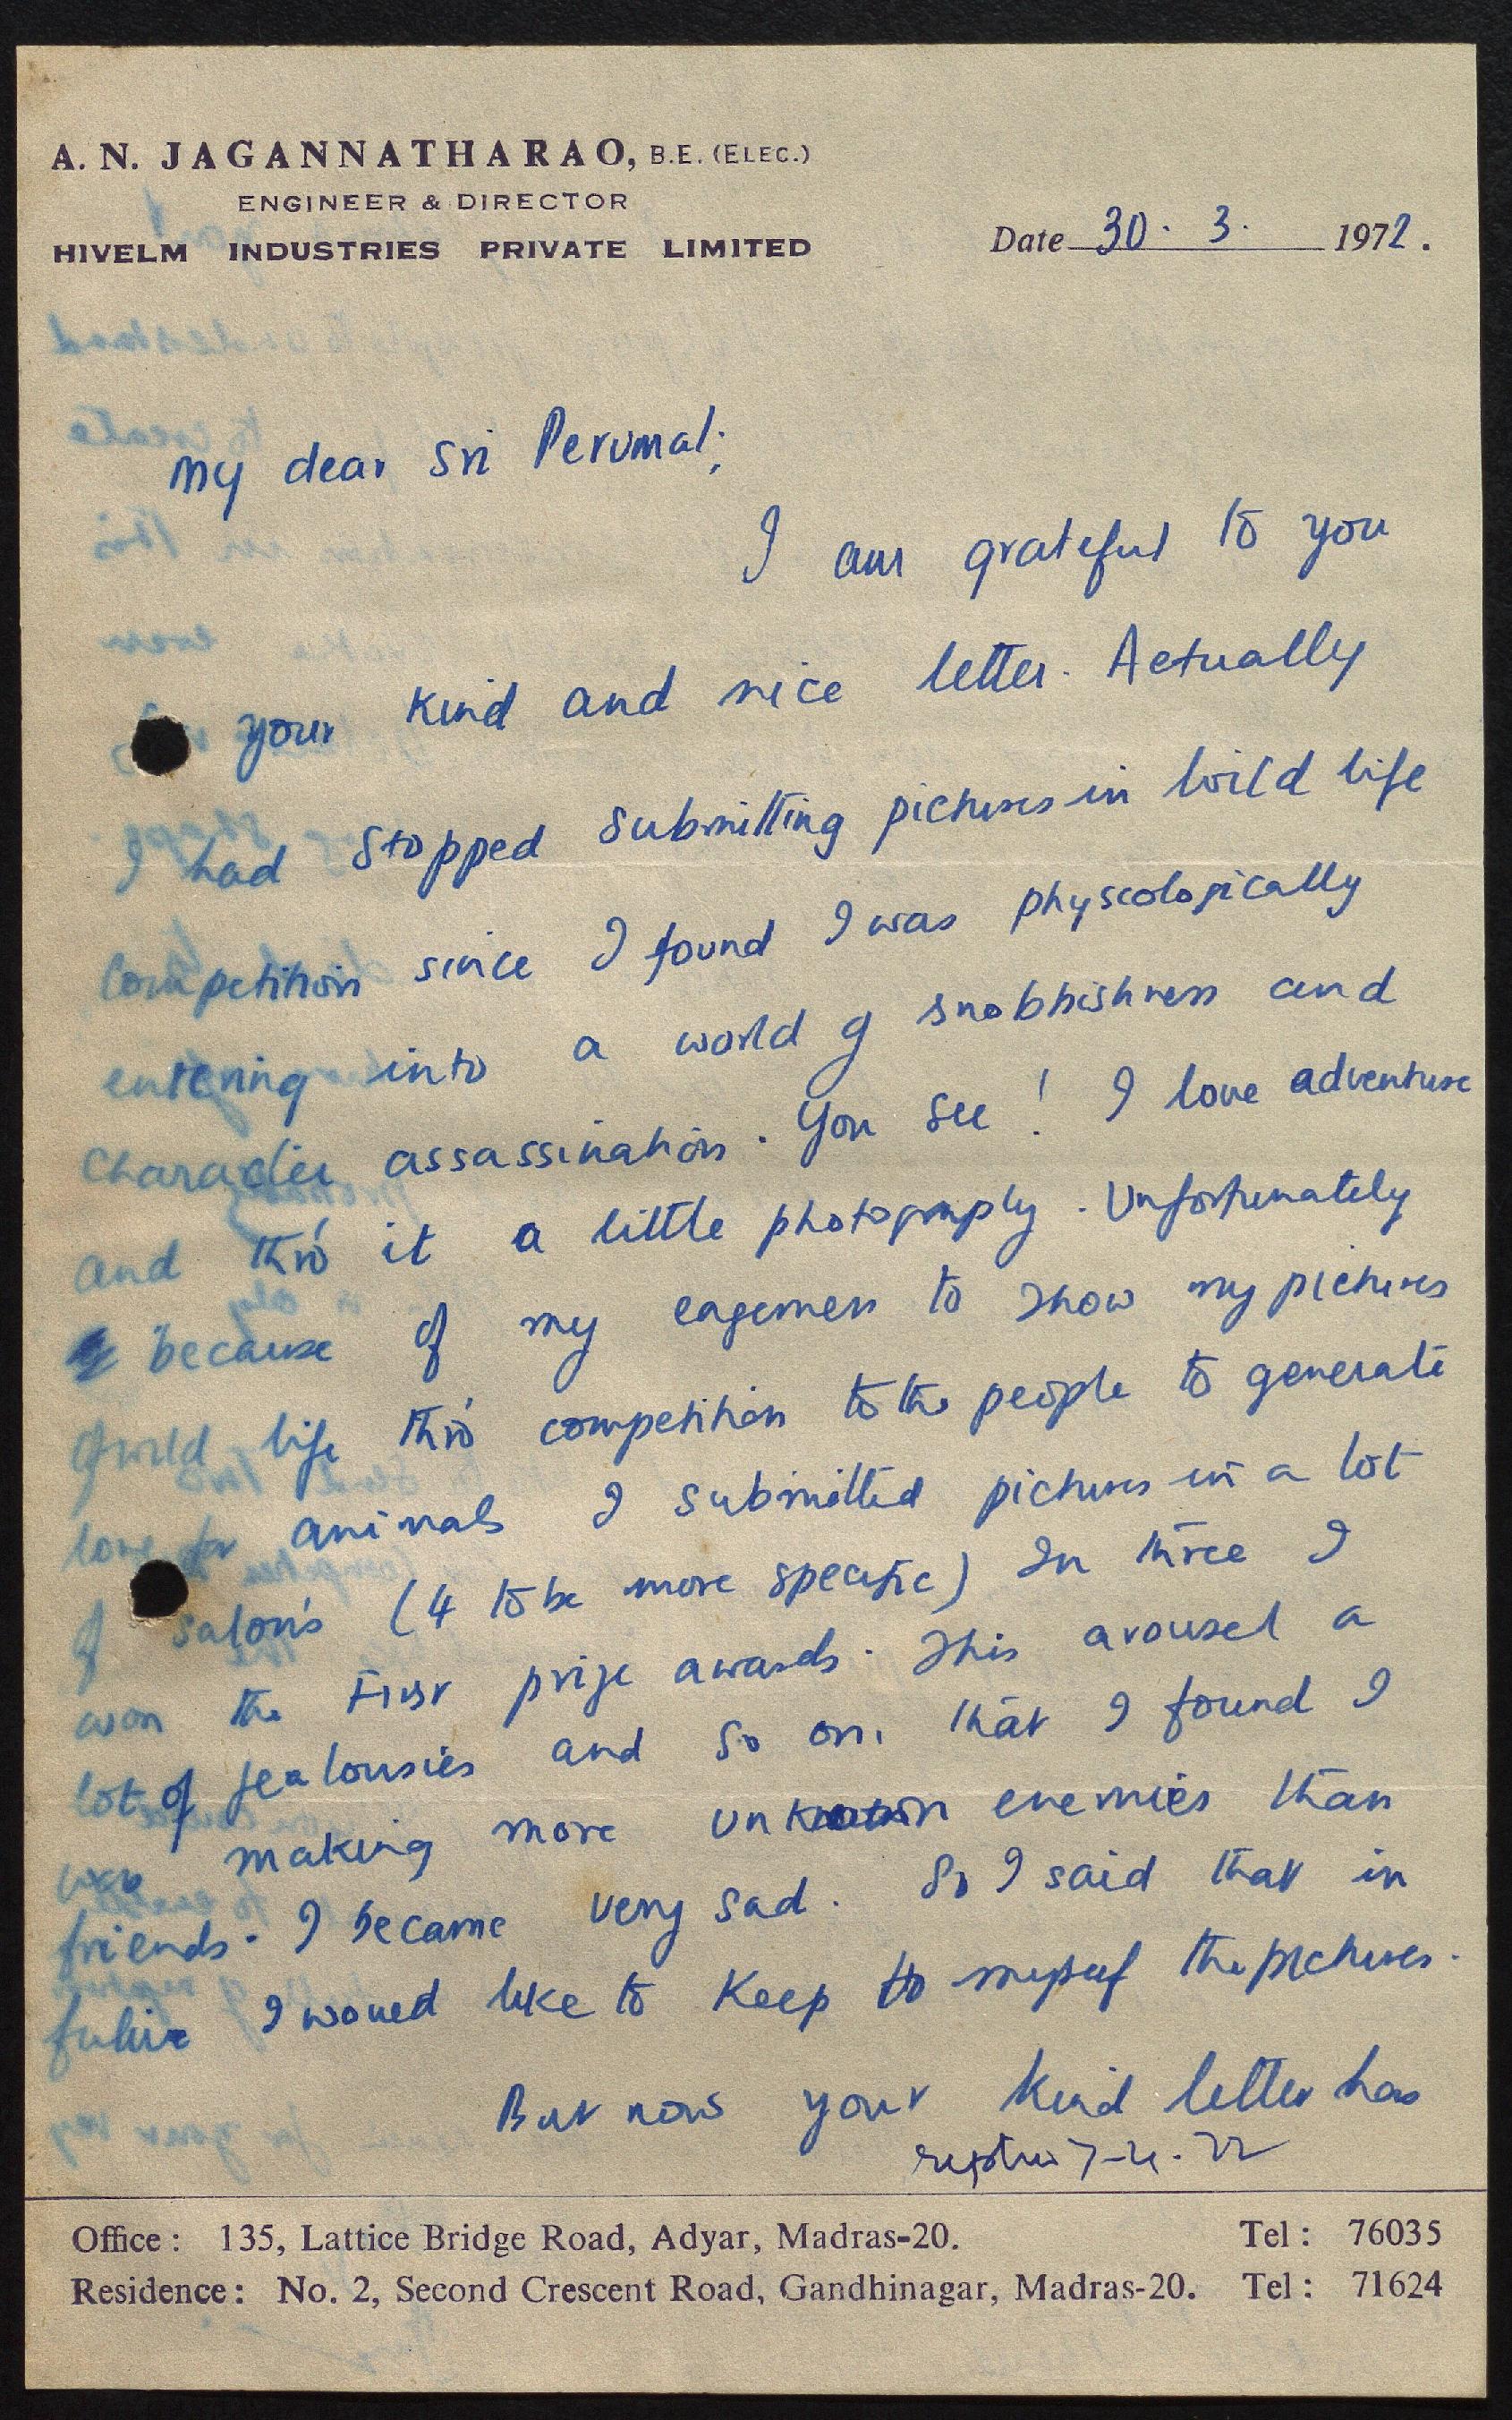 A. N. JAGANNATHARAO, B.E. (ELEC.)
ENGINEER & DIRECTOR
HIVELM INDUSTRIES PRIVATE LIMITED
Date 30. 3. 1972.
My dear Sri Perumal;
I am grateful to you
your kind and nice letter. Actually
I had stopped submitting pictures in wild life
Competition since I found I was physcologically
entering into a world of snobbishness and
Character assassination. You see! I love adventure
and thro' it a little photography. Unfortunately
because of my eagerness to show my pictures
of wild life thro' competition to the people to generate
love for animals I submitted pictures in a lot
of salons (4 to be more specific) In three I
won the First prize awards. This arousel a
lot of jealousies and so on. that I found I
was making more unknown enemies than
friends. I became very sad. So I said that in
future I woued like to keep to myself the pictures.
But now your kind letter has
7-4-72
Office : 135, Lattice Bridge Road, Adyar, Madras-20. Tel : 76035
Residence : No. 2, Second Crescent Road, Gandhinagar, Madras-20. Tel : 71624